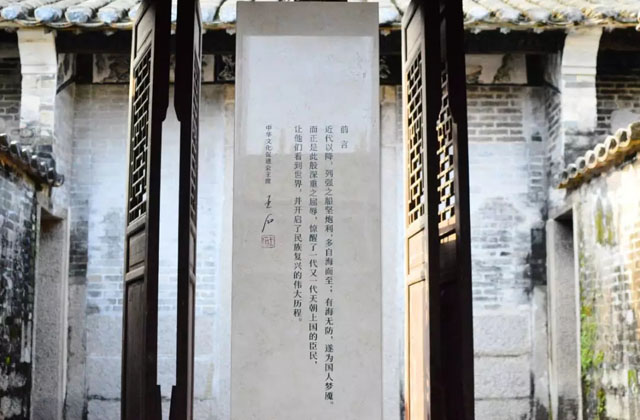 倡言
近代以降，列强之船坚炮利，多自海而至；有海无防，遂为国人梦魇。
而正是此般深重之屈辱，惊醒了一代又一代天朝上国的臣民，
让他们看到世界，并开启了民族复兴的伟大历程。
中华文化促进会主席
王石